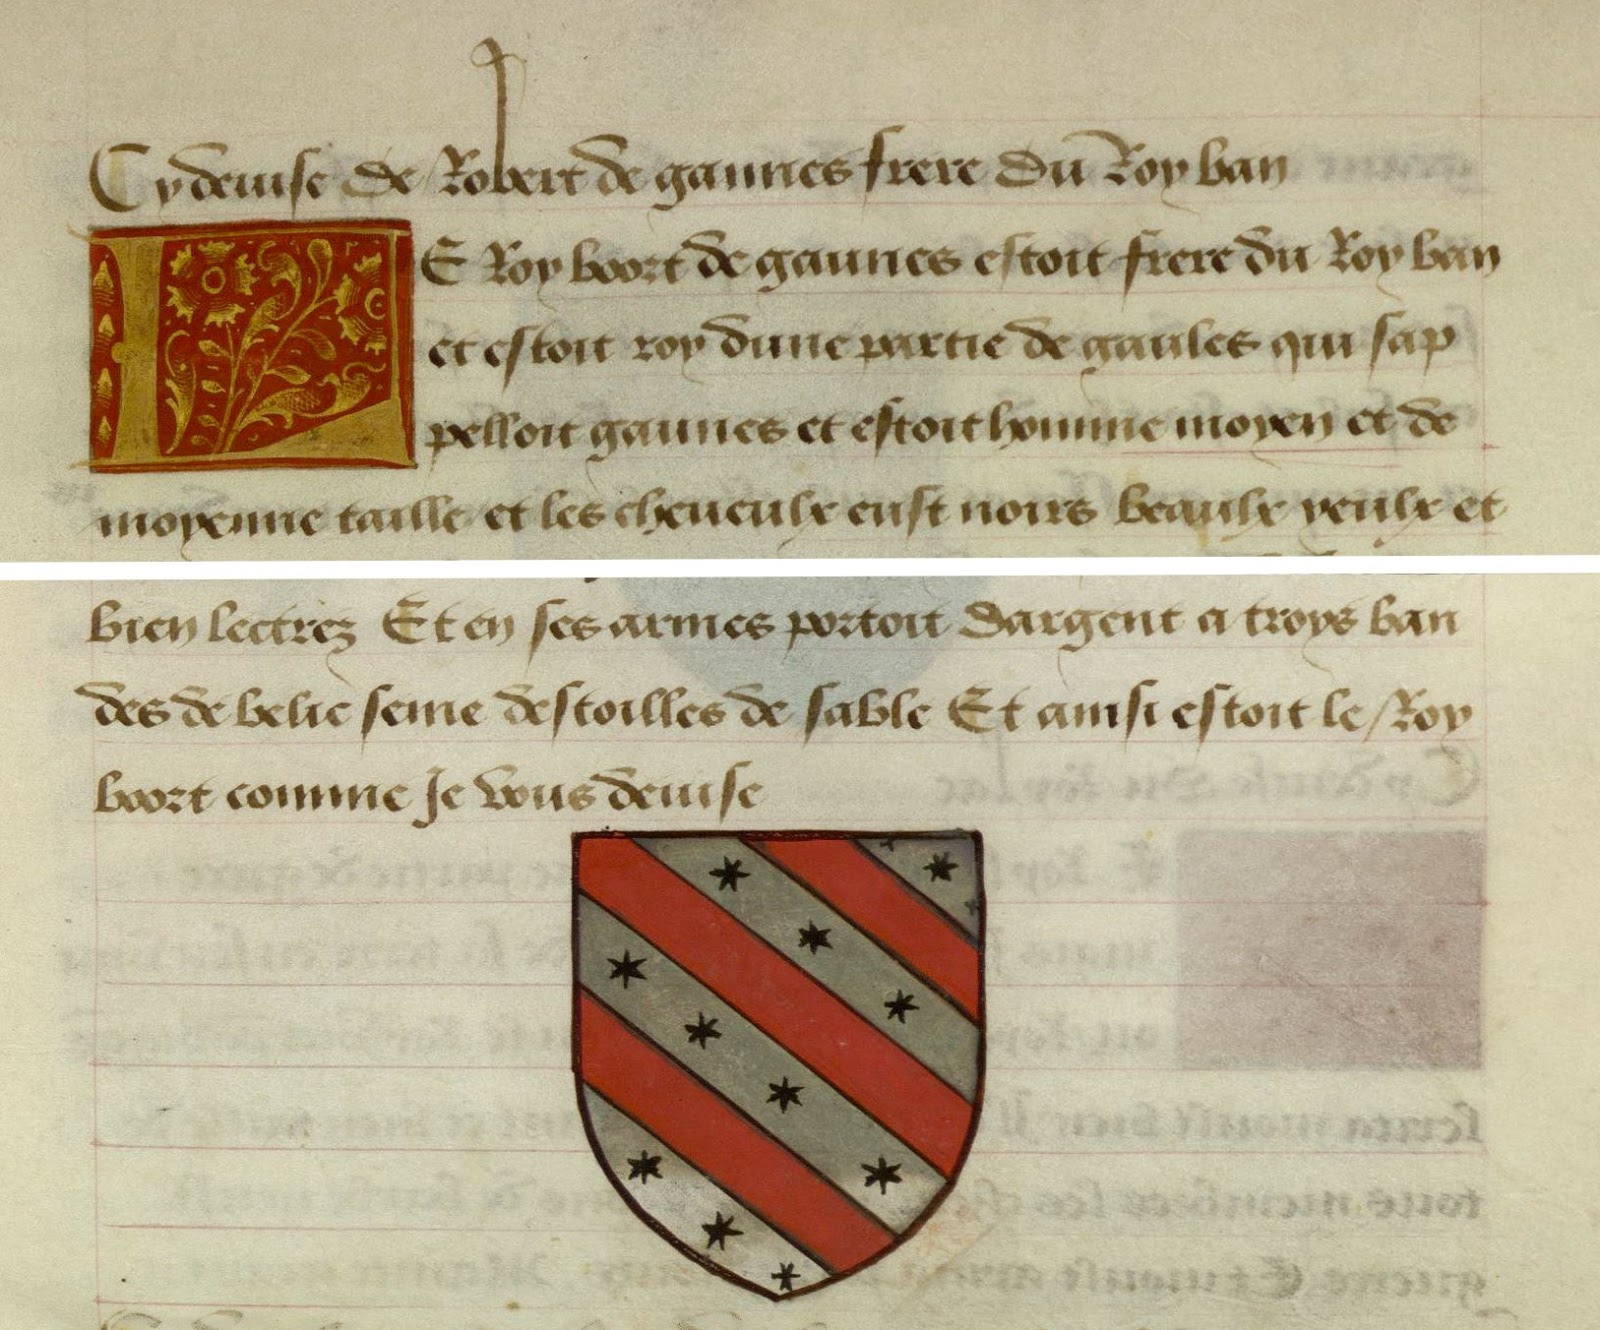 Cy deuise de Robert de gaunes frere du Roy ban
LE Roy boort de gaunes estoit frere du Roy ban
et estoit roy dune partie de gaules qui sap
pelloit gaunes et estoit homme moyen et de
moyenne taille et les cheueulx eust noirs beaulx yeulx et
bien lectrez Et en ses armes portoit dargent a troys ban
des de belic seme destoilles de sable Et ainsi estoit le Roy
boort comme Je vous deuise